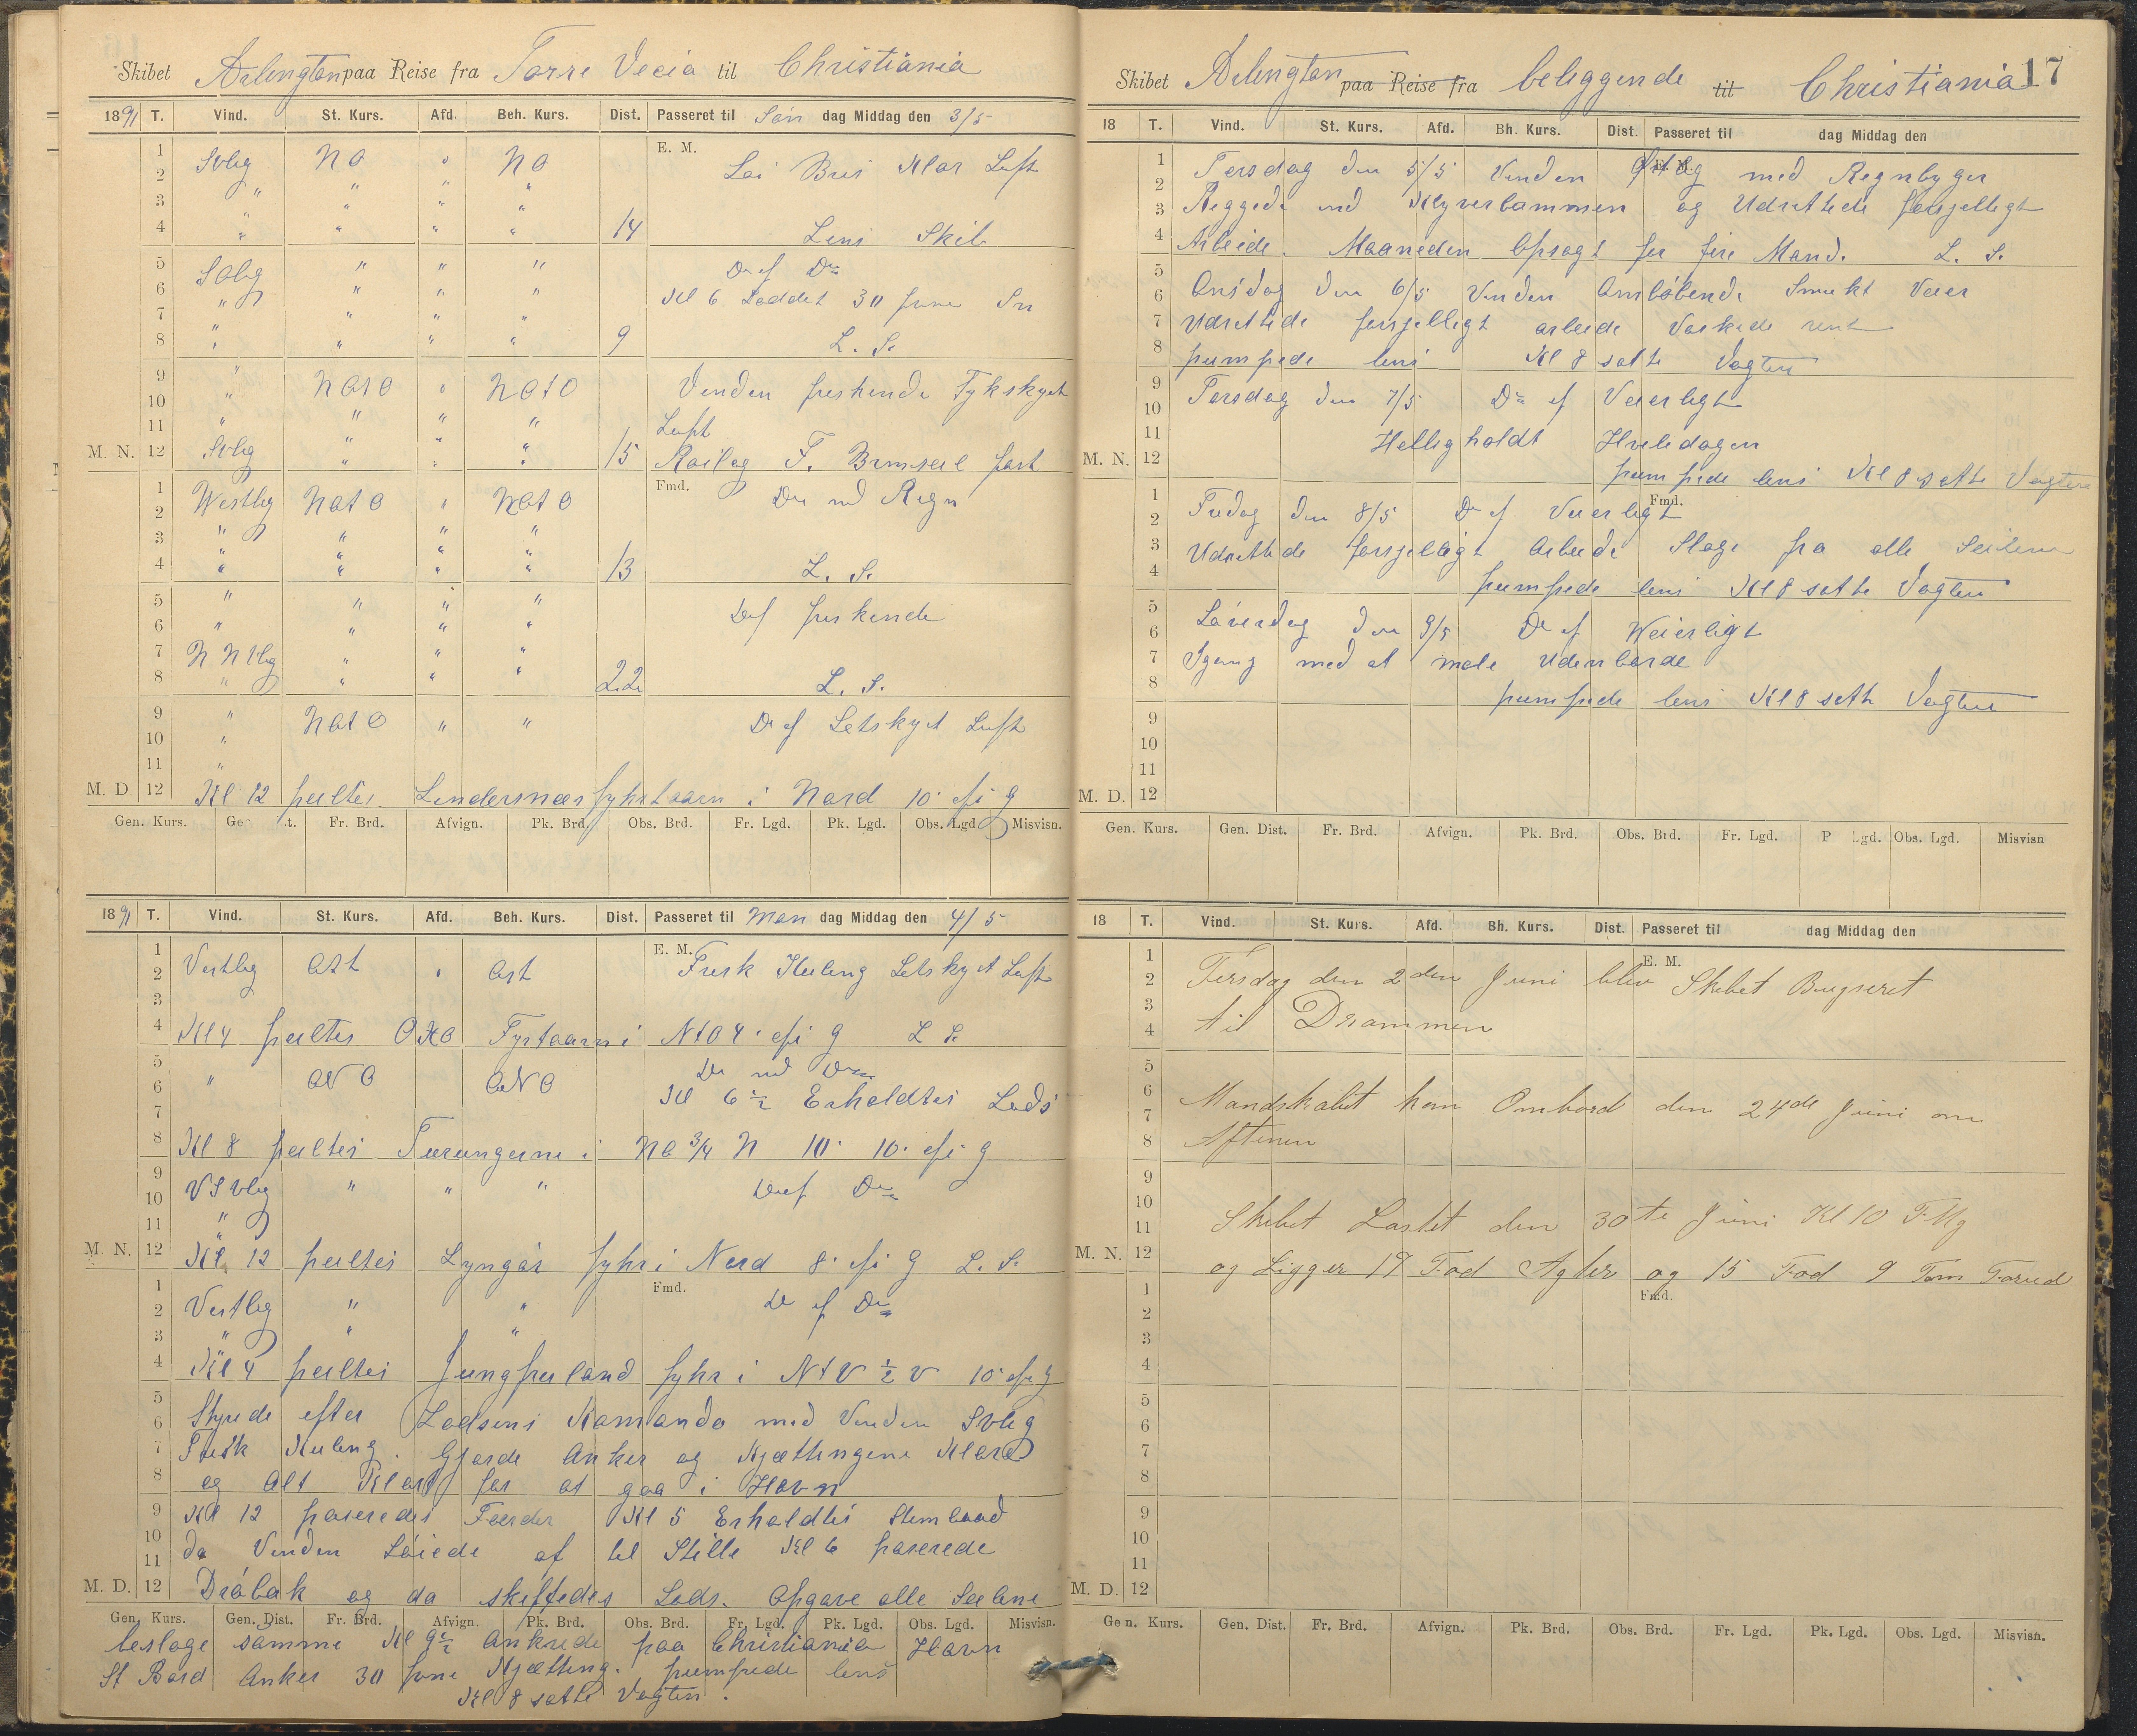 Skibet Arlington paa Reise fra Torre Vecia til Christiania
1891 T. Vind. St. Kurs. Afd. Beh. Kurs. Dist. Passeret til Søn dag Middag den 3/5
1 E. M.
2 SVlig NO " NO Lai Bris Klar Luft
3 " " " "
4 " " " " 14 Lens Skib
5 SOlig " " " Do af Do
6 " " " " Kl 6 Loddet 30 favne Sn
7 " " " "
8 " " " " 9 L. S.
9 " NOtO " NOtO Vinden friskende Tykskyet
10 " " " "
11 " " " " Luft
M. N. 12 SVlig " " " 15 Röilog F. Bramseil fast
1 Fmd.
2 Westlig NOtO " NOtO Do med Regn
3 " " " "
4 " " " " 13 L. S.
5 " " " "
6 " " " " Do af friskende
7 NNVlig " " "
8 " " " " 22 L. S.
9 " NOtO " " Do af Letskyet Luft
10 "
11 "
M. D. 12 Kl 12 peiltes Lindersnæs fyhrtaarn i Nord 10' afig
Gen. Kurs. Ge t. Fr. Brd. Afvign. Pk. Brd. Obs. Brd. Fr. Lgd. Pk. Lgd. Obs. Lgd. Misvisn.
1891 T. Vind. St. Kurs. Afd. Beh. Kurs. Dist. Passeret til Man dag Middag den 4/5
1 E. M.
2 Vestlig Ost " Ost Frisk Kuling Letskyet Luft
3
4 Kl 4 peiltes Fyrtaarn i NtO 4' afig L S.
5
6 " ONO ONO Do med Do
7 Kl 6 1/2 Erholdtes Lods
8 Kl 8 peiltes Torungerne i NO 3/4 N 10' afig
9
10 VSVlig " " " Do af Do
11 "
M. N. 12 Kl 12 peiltes Lyngör fyhr i Nord 8' afig L. S.
1 Fmd.
2 Vestlig " " Do af Do
3 " " "
4 Kl 4 peiltes Jungfruland fyhr i NtV 1/2 V 10' afig
5
6 Styrede efter Lodsens Komando med Vinden SVlig
7 Frisk Kuling. Gjorde Anker og Kjættingene Klare
8 og Alt Klart for at gaa i Havn
9 Kl 12 paseredes Færder Kl 5 Erholdtes Stembaad
10 da Vinden Löiede af til Stille Kl 6 paserede
11
M. D. 12 Dröbak og da skiftedes Lods. Opgave alle Seilene
Gen. Kurs. Gen. Dist. Fr. Brd. Afvign. Pk. Brd. Obs. Brd. Fr. Lgd. Pk. Lgd. Obs. Lgd. Misvisn.
besloge samme Kl 9 1/2 Ankrede paa Christiania Havn
St Bord Anker 30 favne Kjætting. pumpede lens
Kl 8 satte Vagten.
Skibet Arlington paa Reise fra beliggende til Christiania 17
18 T. Vind. St. Kurs. Afd. Bh. Kurs. Dist. Passeret til dag Middag den
1 E. M.
2 Tirsdag den 5/5 Vinden Østlig med Regnbyger
3 Riggede ind Klyverbommen og Udrettede forsjelligt
4 Arbeide. Maaneden Opsagt for fire Mand. L. S.
5
6 Onsdag den 6/5 Vinden Omløbende Smukt Veier
7 Udrettede forsjelligt arbeide Vaskede rent
8 pumpede lens Kl 8 satte Vagten
9
10 Torsdag den 7/5 Do af Veierligt
11 Hellig holdt Hviledagen
M. N. 12 pumpede lens Kl 8 satte Vagten
1 Fmd.
2 Fredag den 8/5 Do af Veierligt
3 Udrettede forsjelligt Arbeide Sloge fra alle Seilene
4 pumpede lens Kl 8 satte Vagten
5
6 Löverdag den 9/5 Do af Weierligt
7 Igang med at male Udenborde
8 pumpede lens Kl 8 satte Vagten
9
10
11
M. D. 12
Gen. Kurs. Gen. Dist. Fr. Brd. Afvign. Pk. Brd. Obs. Brd. Fr. Lgd. P .gd. Obs. Lgd. Misvisn
18 T. Vind. St. Kurs. Afd. Bh. Kurs. Dist. Passeret til dag Middag den
1 E. M.
2 Tirsdag den 2den Juni blev Skibet Bugseret
3
4 til Drammen
5
6 Mandskabet kom Ombord den 24de Juni om
7
8 Aftenen
9
10
11 Skibet Lastet den 30te Juni Kl 10 F. Mg
M. N. 12 og Ligger 17 Fod Agter og 15 Fod 9 Tom Forud
1 Fmd.
2
3
4
5
6
7
8
9
10
11
M. D. 12
Gen. Kurs. Gen. Dist. Fr. Brd. Afvign. Pk. Brd. Obs. Brd. Fr. Lgd. Pk. Lgd. Obs. Lgd. Misvisn.